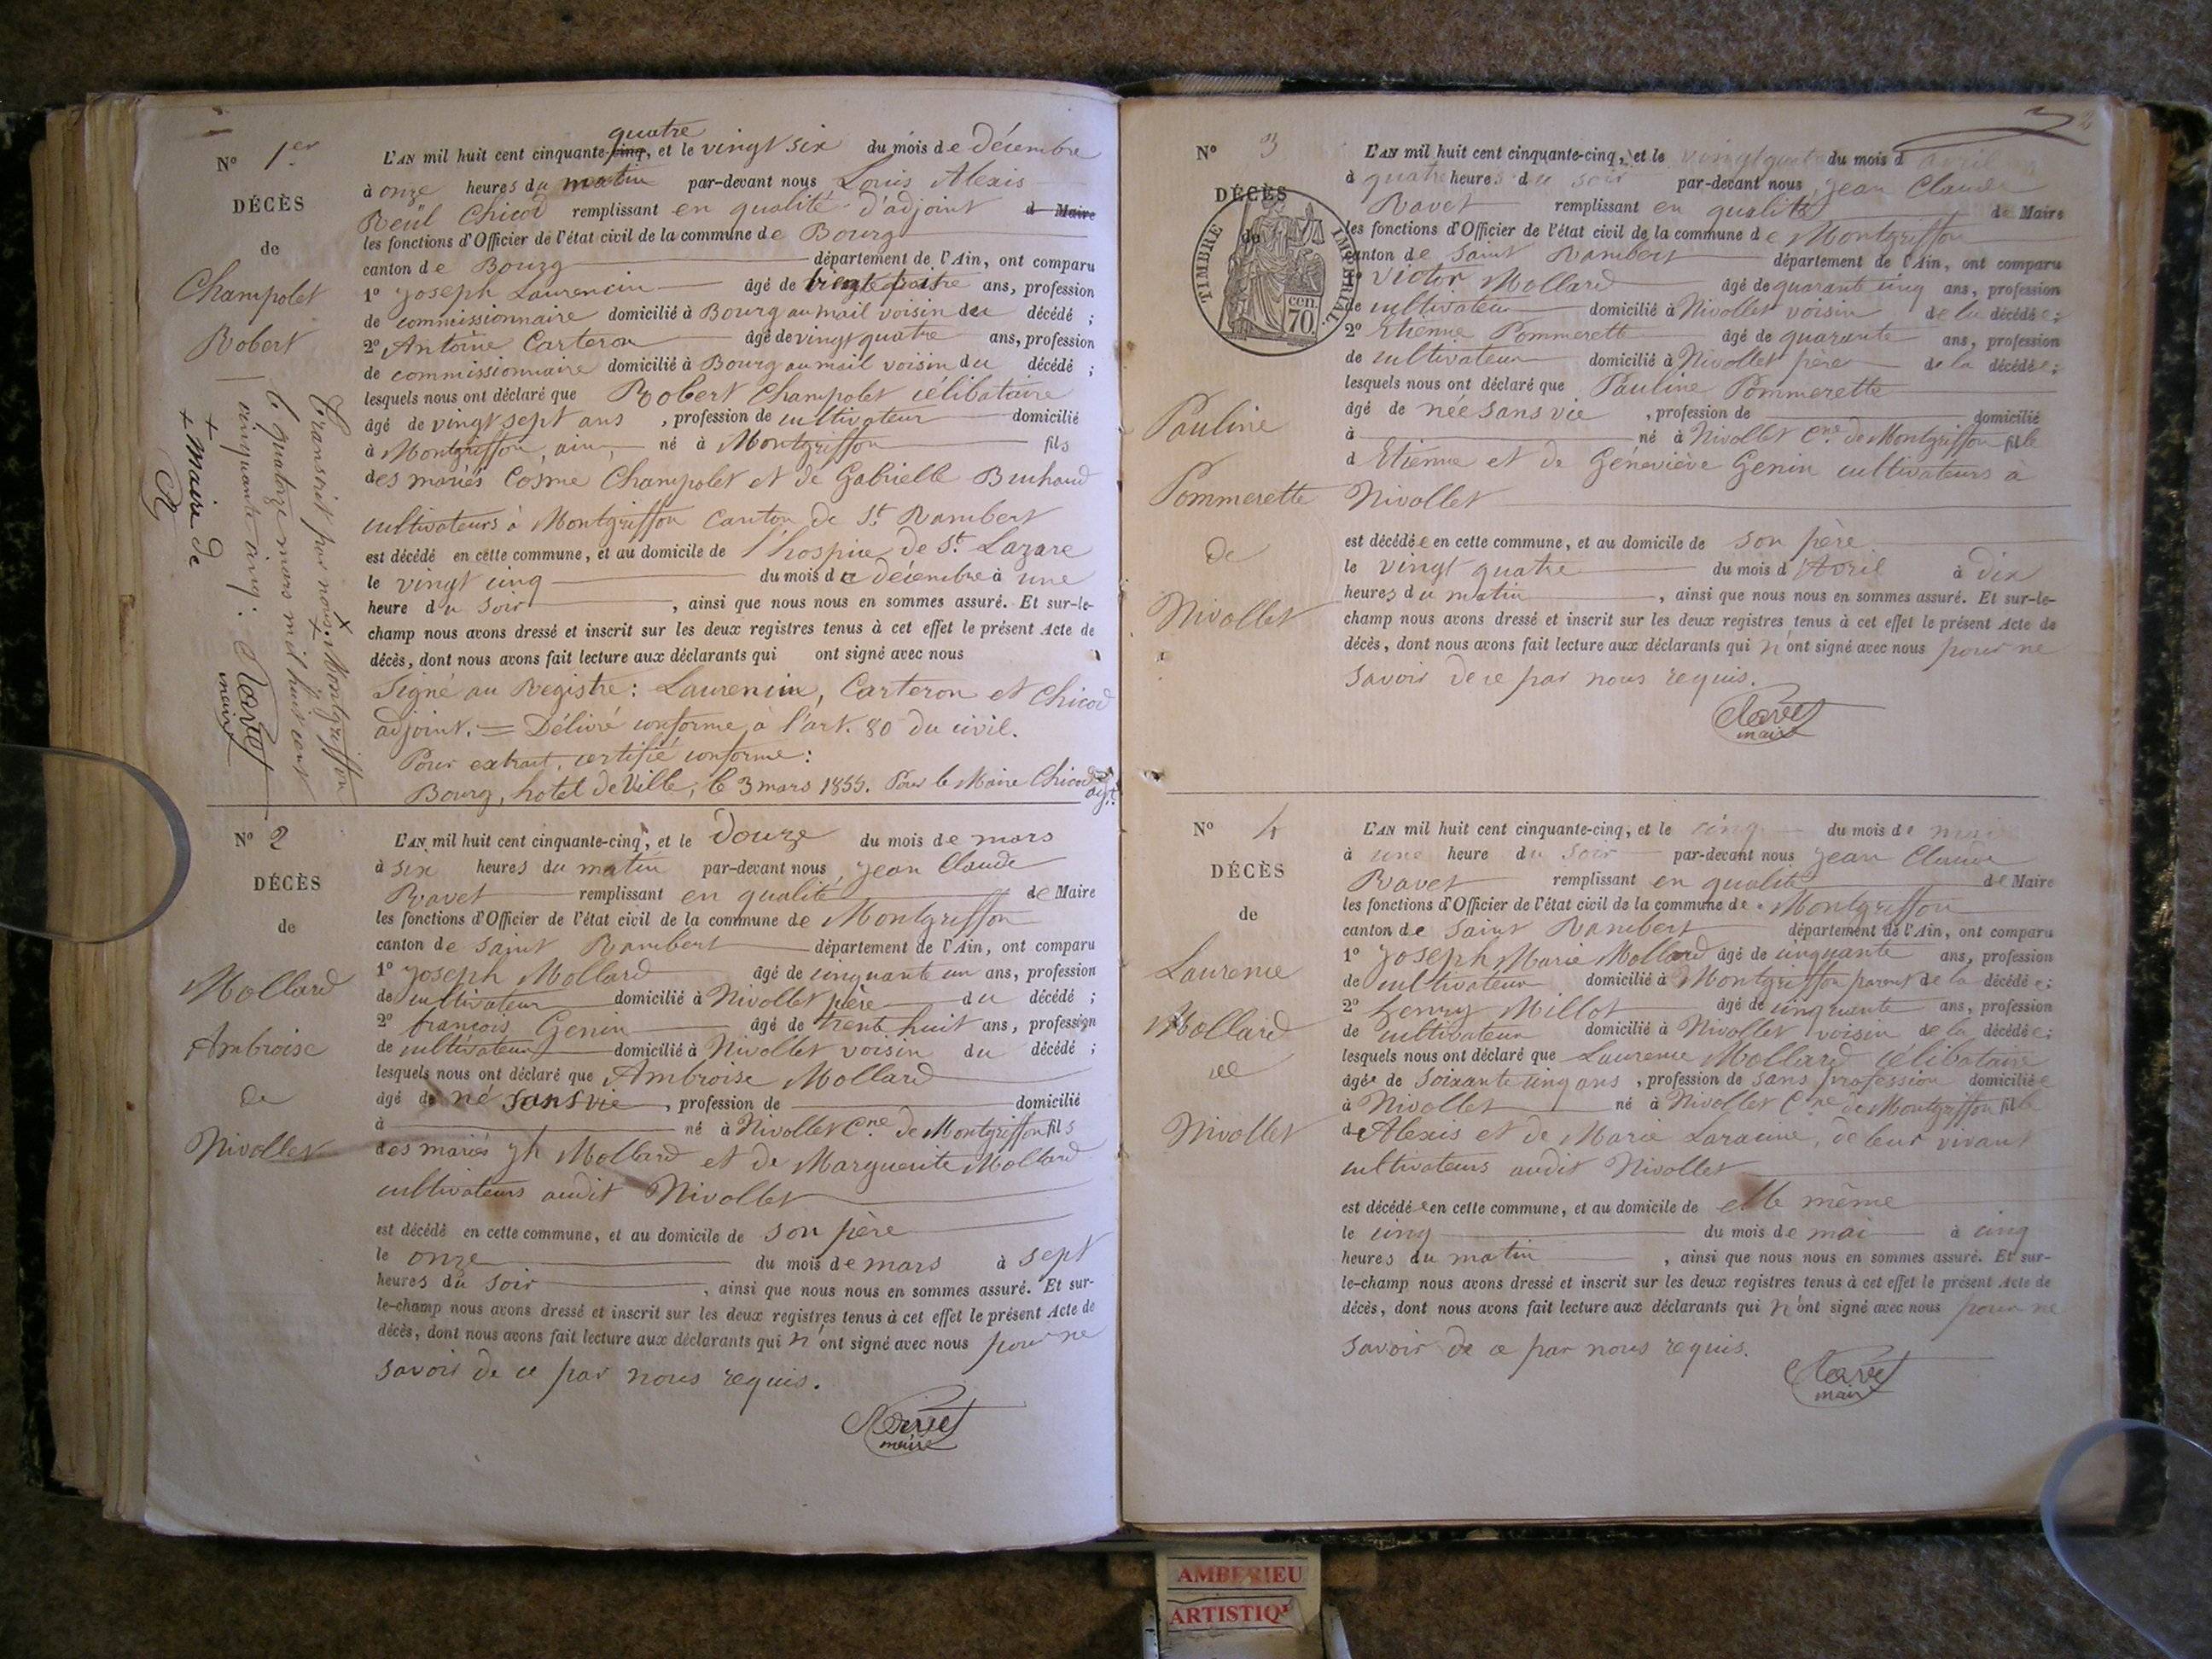 N° 1er
DÉCÈS
de
Champolet
Robert
Transcrit par nous, + Montgriffon
le quatorze mars mil huit cent
cinquante cinq : Ravet
maire
+ maire de
quatre
L'AN mil huit cent cinquante-cinq, et le vingt six du mois de Décembre
à onze heures du matin par-devant nous Louis Alexis
Reül Chicod remplissant en qualité d'adjoint d Maire
les fonctions d'Officier de l'état civil de la commune de Bourg
canton de Bourg département de l'Ain, ont comparu
1° Joseph Laurencin âgé de ans, profession
de commissionnaire domicilié à Bourg au mail voisin du décédé ;
2° Antoine Carteron âgé de vingt quatre ans, profession
de commissionnaire domicilié à Bourg au mail voisin du décédé ;
lesquels nous ont déclaré que Robert Champolet célibataire
âgé de vingt sept ans , profession de cultivateur domicilié
à Montgriffon, ain, né à Montgriffon fils
des mariés Cosme Champolet et de Gabrielle Buchard
cultivateurs à Montgriffon Canton de St Rambert
est décédé en cette commune, et au domicile de l'hospice de St Lazare
le vingt cinq du mois de décembre à une
heure du soir , ainsi que nous nous en sommes assuré. Et sur-le-
champ nous avons dressé et inscrit sur les deux registres tenus à cet effet le présent Acte de
décès, dont nous avons fait lecture aux déclarants qui ont signé avec nous
Signé au Registre : Laurencin, Carteron et Chicod
adjoint. = Délivré conforme à l'art. 80 du civil.
Pour extrait, certifié conforme :
Bourg, hotel de Ville, le 3 mars 1855. Pour le Maire Chicod
adjt.
N° 2
DÉCÈS
de
Mollard
Ambroise
de
Nivollet
L'AN mil huit cent cinquante-cinq, et le Douze du mois de mars
à six heures du matin par-devant nous, Jean Claude
Ravet remplissant en qualité de Maire
les fonctions d'Officier de l'état civil de la commune de Montgriffon
canton de Saint Rambert département de l'Ain, ont comparu
1° Joseph Mollard âgé de cinquante un ans, profession
de cultivateur domicilié à Nivollet père du décédé ;
2° françois Genin âgé de trente huit ans, profession
de cultivateur domicilié à Nivollet voisin du décédé ;
lesquels nous ont déclaré que Ambroise Mollard
âgé de né sans vie , profession de domicilié
à né à Nivollet Cne de Montgriffon fils
des mariés jh Mollard et de Marguerite Mollard
cultivateurs audit Nivollet
est décédé en cette commune, et au domicile de son père
le onze du mois de mars à sept
heures du soir , ainsi que nous nous en sommes assuré. Et sur-
le-champ nous avons dressé et inscrit sur les deux registres tenus à cet effet le présent Acte de
décès, dont nous avons fait lecture aux déclarants qui n'ont signé avec nous pour ne
savoir de ce par nous requis.
Ravet
maire
2
N° 3
DÉCÈS
de
TIMBRE IMPÉRIAL.
70 cen.
Pauline
Pommerette
de
Nivollet
L'AN mil huit cent cinquante-cinq, et le vingt quatre du mois d avril
à quatre heures du soir par-devant nous, Jean Claude
Ravet remplissant en qualité de Maire
les fonctions d'Officier de l'état civil de la commune de Montgriffon
canton de Saint Rambert département de l'Ain, ont comparu
1° Victor Mollard âgé de quarante cinq ans, profession
de cultivateur domicilié à Nivollet voisin de la décédée ;
2° Etienne Pommerette âgé de quarante ans, profession
de cultivateur domicilié à Nivollet père de la décédée ;
lesquels nous ont déclaré que Pauline Pommerette
âgé de née sans vie , profession de domicilié
à né à Nivollet Cne de Montgriffon fille
d Etienne et de Géneviève Genin cultivateurs à
Nivollet
est décédée en cette commune, et au domicile de son père
le vingt quatre du mois d'Avril à dix
heures du matin , ainsi que nous nous en sommes assuré. Et sur-le-
champ nous avons dressé et inscrit sur les deux registres tenus à cet effet le présent Acte de
décès, dont nous avons fait lecture aux déclarants qui n'ont signé avec nous pour ne
savoir de ce par nous requis.
Ravet
maire
N° 4
DÉCÈS
de
Laurence
Mollard
de
Nivollet
L'AN mil huit cent cinquante-cinq, et le cinq du mois de mai
à une heure du soir par-devant nous Jean Claude
Ravet remplissant en qualité de Maire
les fonctions d'Officier de l'état civil de la commune de Montgriffon
canton de Saint Rambert département de l'Ain, ont comparu
1° Joseph Marie Mollard âgé de cinquante ans, profession
de cultivateur domicilié à Montgriffon parent de la décédée ;
2° henry Millot âgé de cinquante ans, profession
de cultivateur domicilié à Nivollet voisin de la décédée ;
lesquels nous ont déclaré que Laurence Mollard célibataire
âgée de soixante cinq ans , profession de sans profession domiciliée
à Nivollet né à Nivollet Cne de Montgriffon fille
d'Alexis et de Marie Laracine, de leur vivant
cultivateurs audit Nivollet
est décédée en cette commune, et au domicile de elle même
le cinq du mois de mai à cinq
heures du matin , ainsi que nous nous en sommes assuré. Et sur-
le-champ nous avons dressé et inscrit sur les deux registres tenus à cet effet le présent Acte de
décès, dont nous avons fait lecture aux déclarants qui n'ont signé avec nous pour ne
savoir de ce par nous requis.
Ravet
maire
AMBERIEU
ARTISTIQ